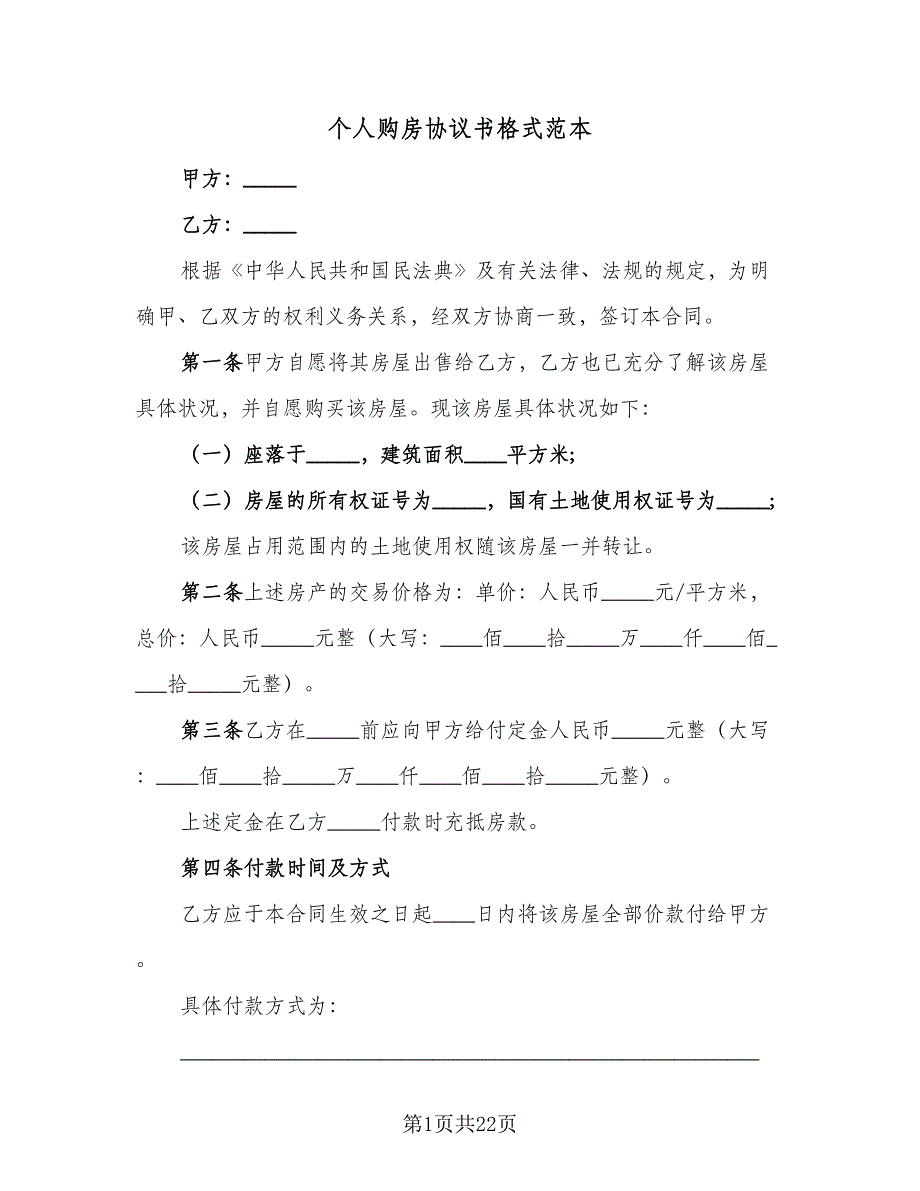 个人购房协议书格式范本
甲方：_____
乙方：_____
根据《中华人民共和国民法典》及有关法律、法规的规定，为明
确甲、乙双方的权利义务关系，经双方协商一致，签订本合同。
第一条甲方自愿将其房屋出售给乙方，乙方也已充分了解该房屋
具体状况，并自愿购买该房屋。现该房屋具体状况如下：
（一）座落于_____，建筑面积____平方米;
（二）房屋的所有权证号为_____，国有土地使用权证号为_____;
该房屋占用范围内的土地使用权随该房屋一并转让。
第二条上述房产的交易价格为：单价：人民币_____元/平方米，
总价：人民币_____元整（大写：____佰____拾_____万____仟____佰_
___拾_____元整）。
第三条乙方在_____前应向甲方给付定金人民币_____元整（大写
：____佰____拾_____万____仟____佰____拾_____元整）。
上述定金在乙方_____付款时充抵房款。
第四条付款时间及方式
乙方应于本合同生效之日起____日内将该房屋全部价款付给甲方
。
具体付款方式为：
_______________________________________________________
第1页共22页